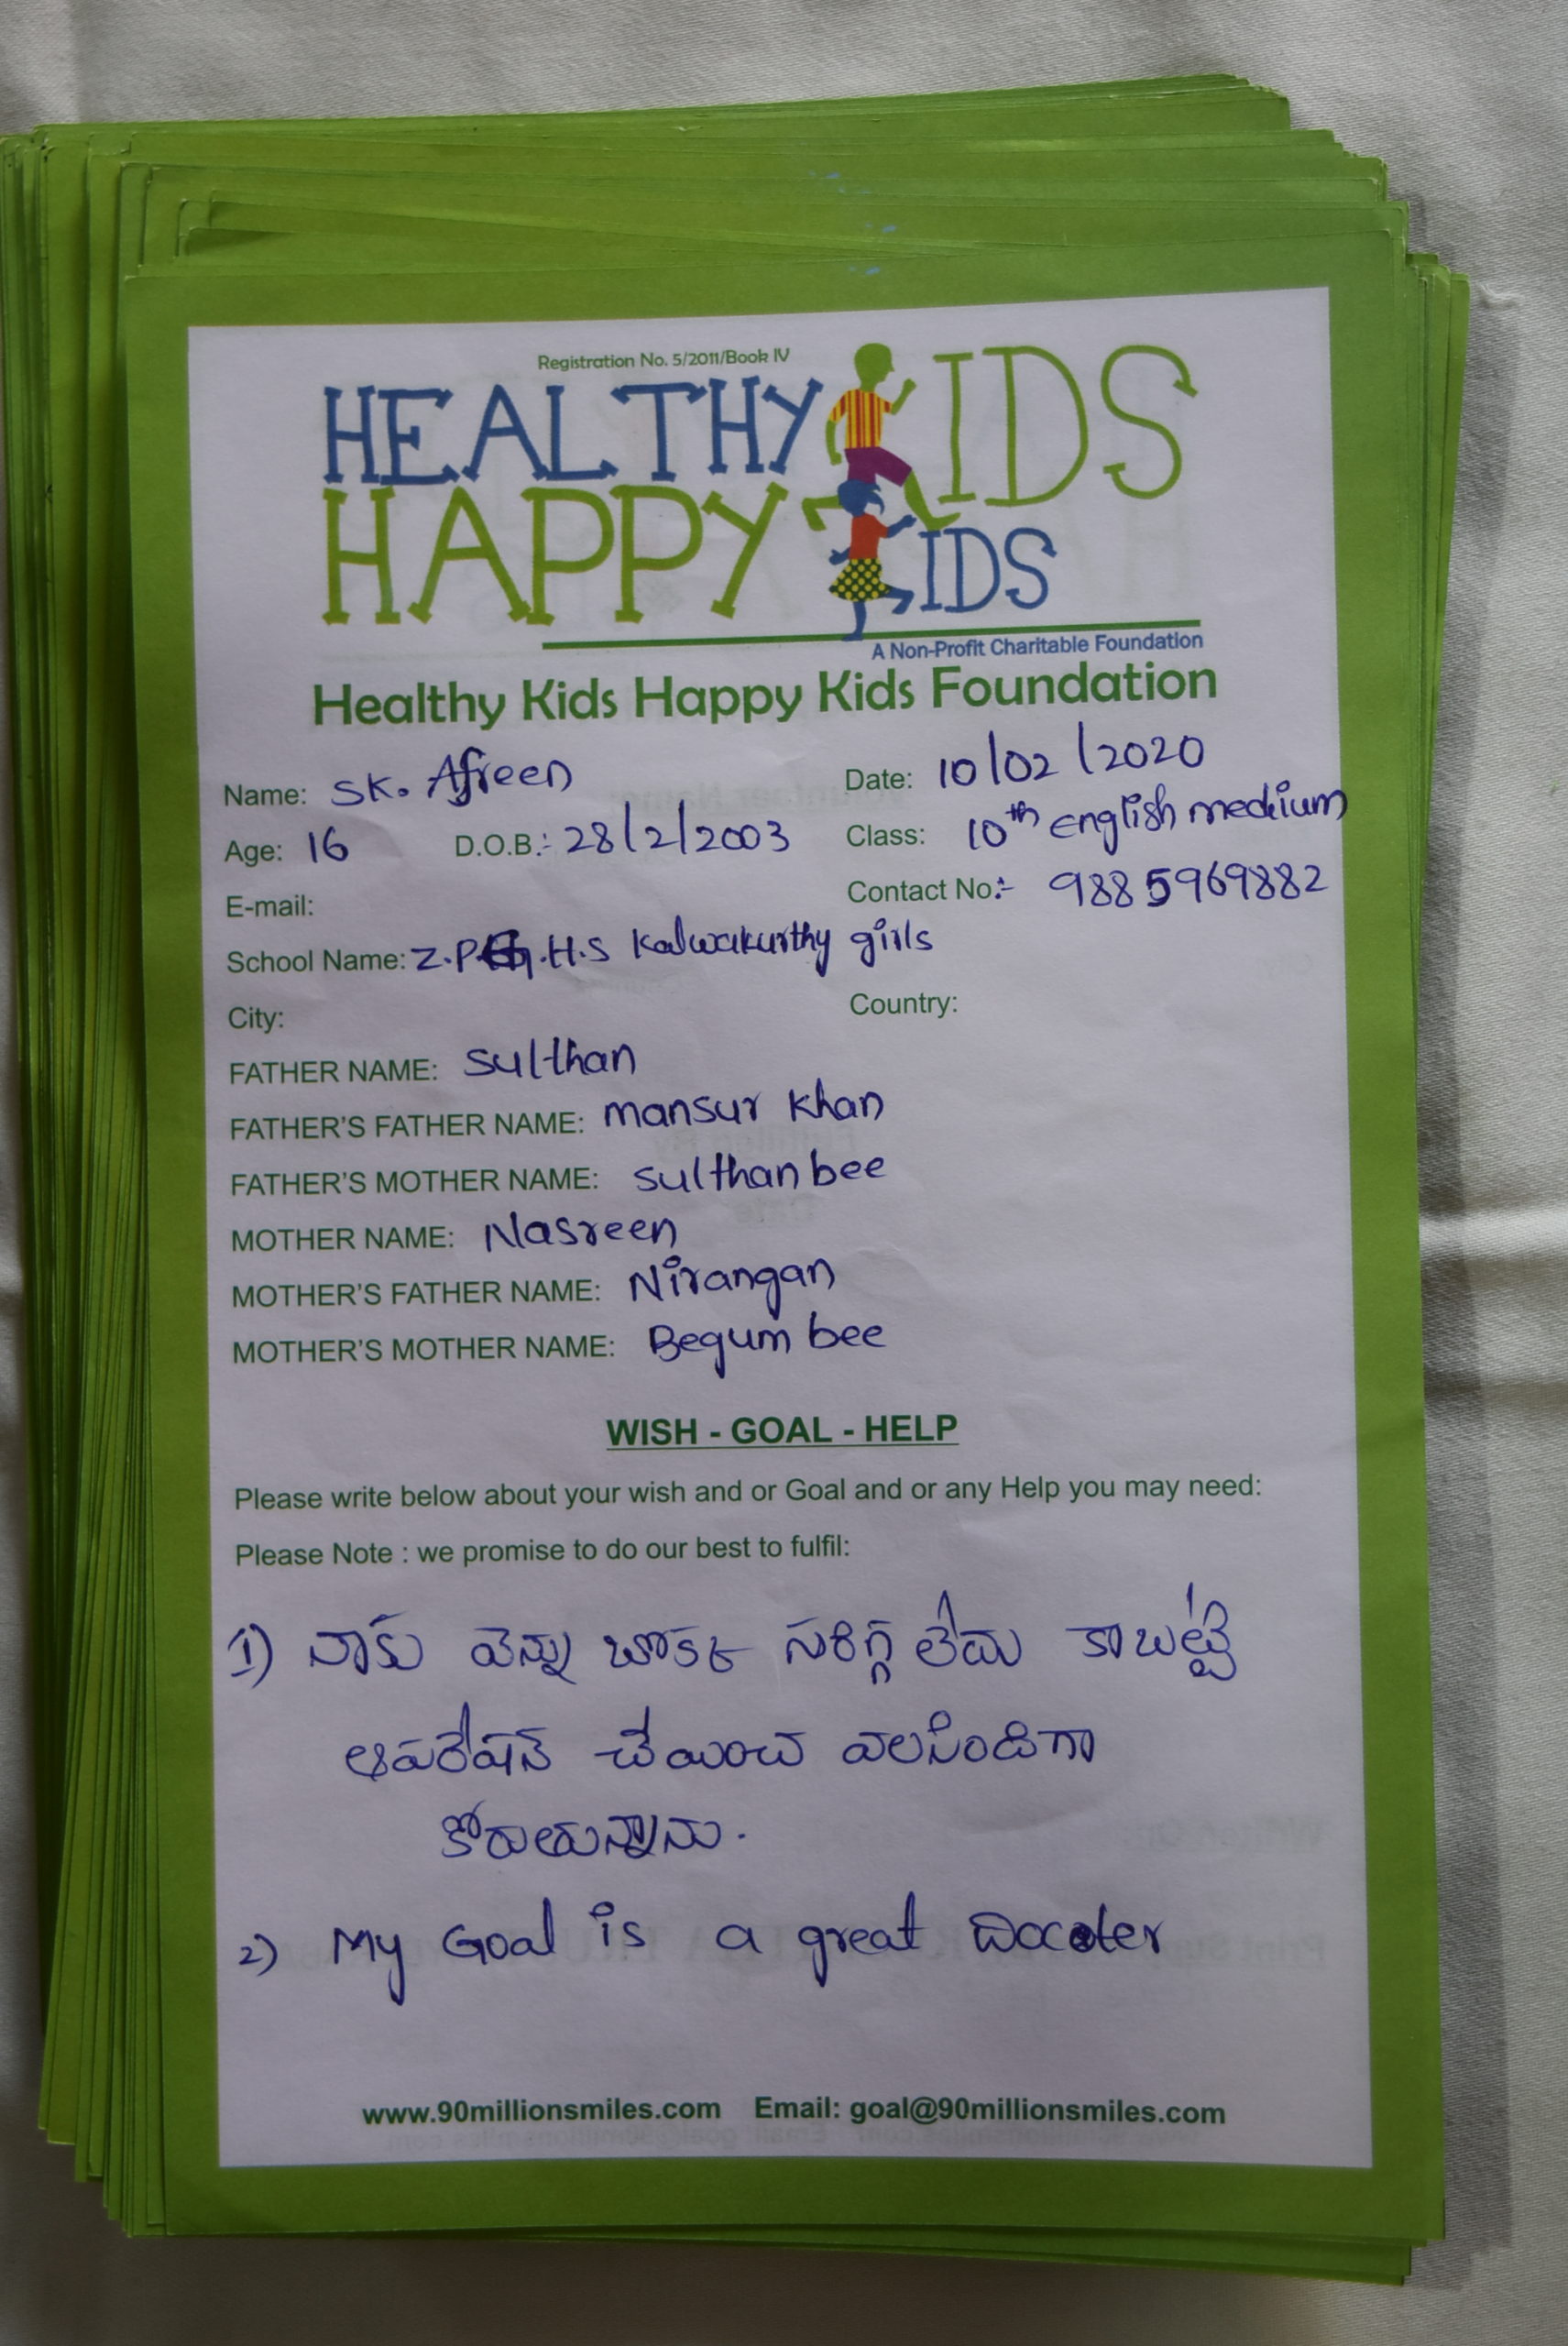 Registration No. 5/2011/Book IV
HEALTHY KIDS
HAPPY KIDS
A Non-Profit Charitable Foundation
Healthy Kids Happy Kids Foundation
Name: SK. Afreen Date: 10/02/2020
Age: 16 D.O.B.:- 28/2/2003 Class: 10th English medium
E-mail: Contact No.:- 9885969882
School Name: Z.P.G.H.S Kalwakurthy girls
City: Country:
FATHER NAME: Sulthan
FATHER'S FATHER NAME: mansur khan
FATHER'S MOTHER NAME: sulthan bee
MOTHER NAME: Nasreen
MOTHER'S FATHER NAME: Nirangan
MOTHER'S MOTHER NAME: Begum bee
WISH - GOAL - HELP
Please write below about your wish and or Goal and or any Help you may need:
Please Note : we promise to do our best to fulfil:
1) నాకు వెన్ను బొకక సరిగ్గ లేదు కాబట్టి
ఆపరేషన్ చేయించ వలసిందిగా
కోరుతున్నాను.
2) My Goal is a great
www.90millionsmiles.com Email: goal@90millionsmiles.com